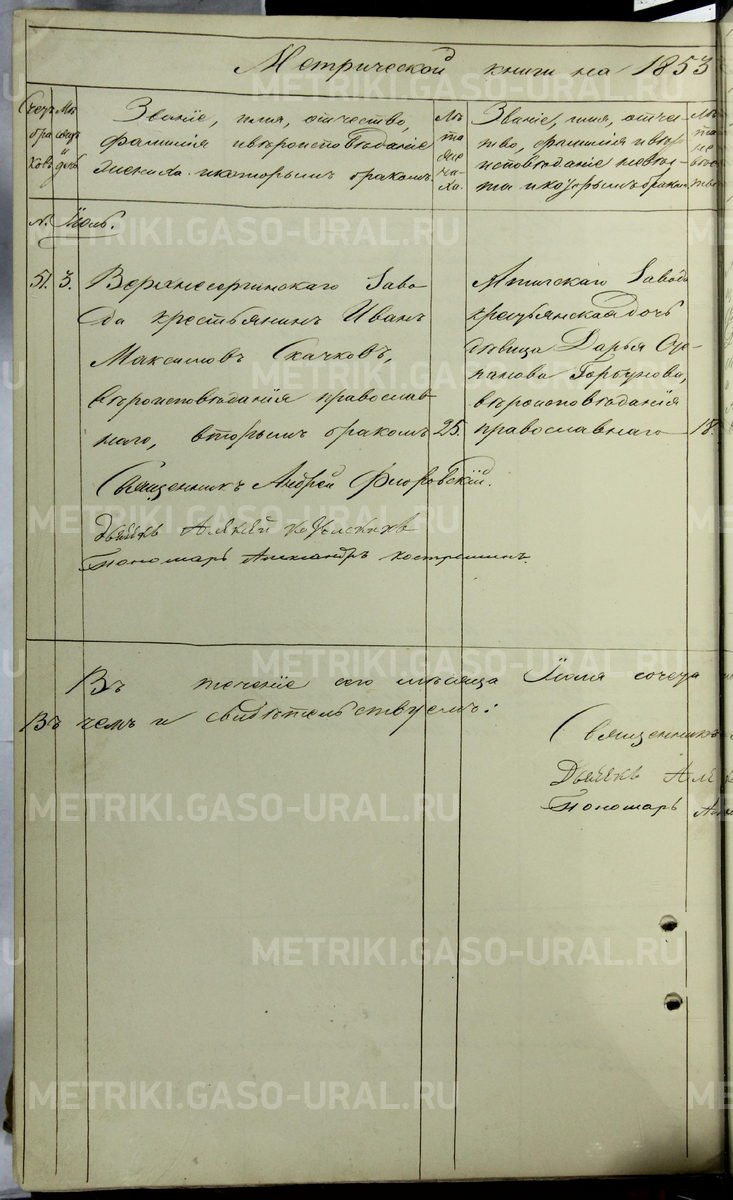 Метрической книги на 1853
Счетъ браковъ
Мѣсяцъ и день
Званіе, имя, отчество,
фамилія и вѣроисповѣданіе
жениха и которымъ бракомъ.
Лѣта жениха.
Званіе, имя, отчес-
тво, фамилія и вѣро-
исповѣданіе невѣс-
ты и которымъ бракомъ
Лѣта невѣсты
№. Іюль.
51. 3. Верхнесергинскаго Заво-
да крестьянинъ Иванъ
Максимовъ Скачковъ,
вѣроисповѣданія православ-
наго, вторымъ бракомъ 25.
Атигскаго Завода
крестьянская дочь
дѣвица Дарья Сте-
панова Горбунова,
вѣроисповѣданія
православнаго 18.
Священникъ Андрей Флоровскій.
Дьячекъ Алексѣй
Пономарь Александръ Костромин.
Въ теченіе сего мѣсяца Іюля сочета
Въ чемъ и свидѣтельствуемъ:
Священникъ
Дьячекъ Але
Пономарь Але
METRIKI.GASO-URAL.RU